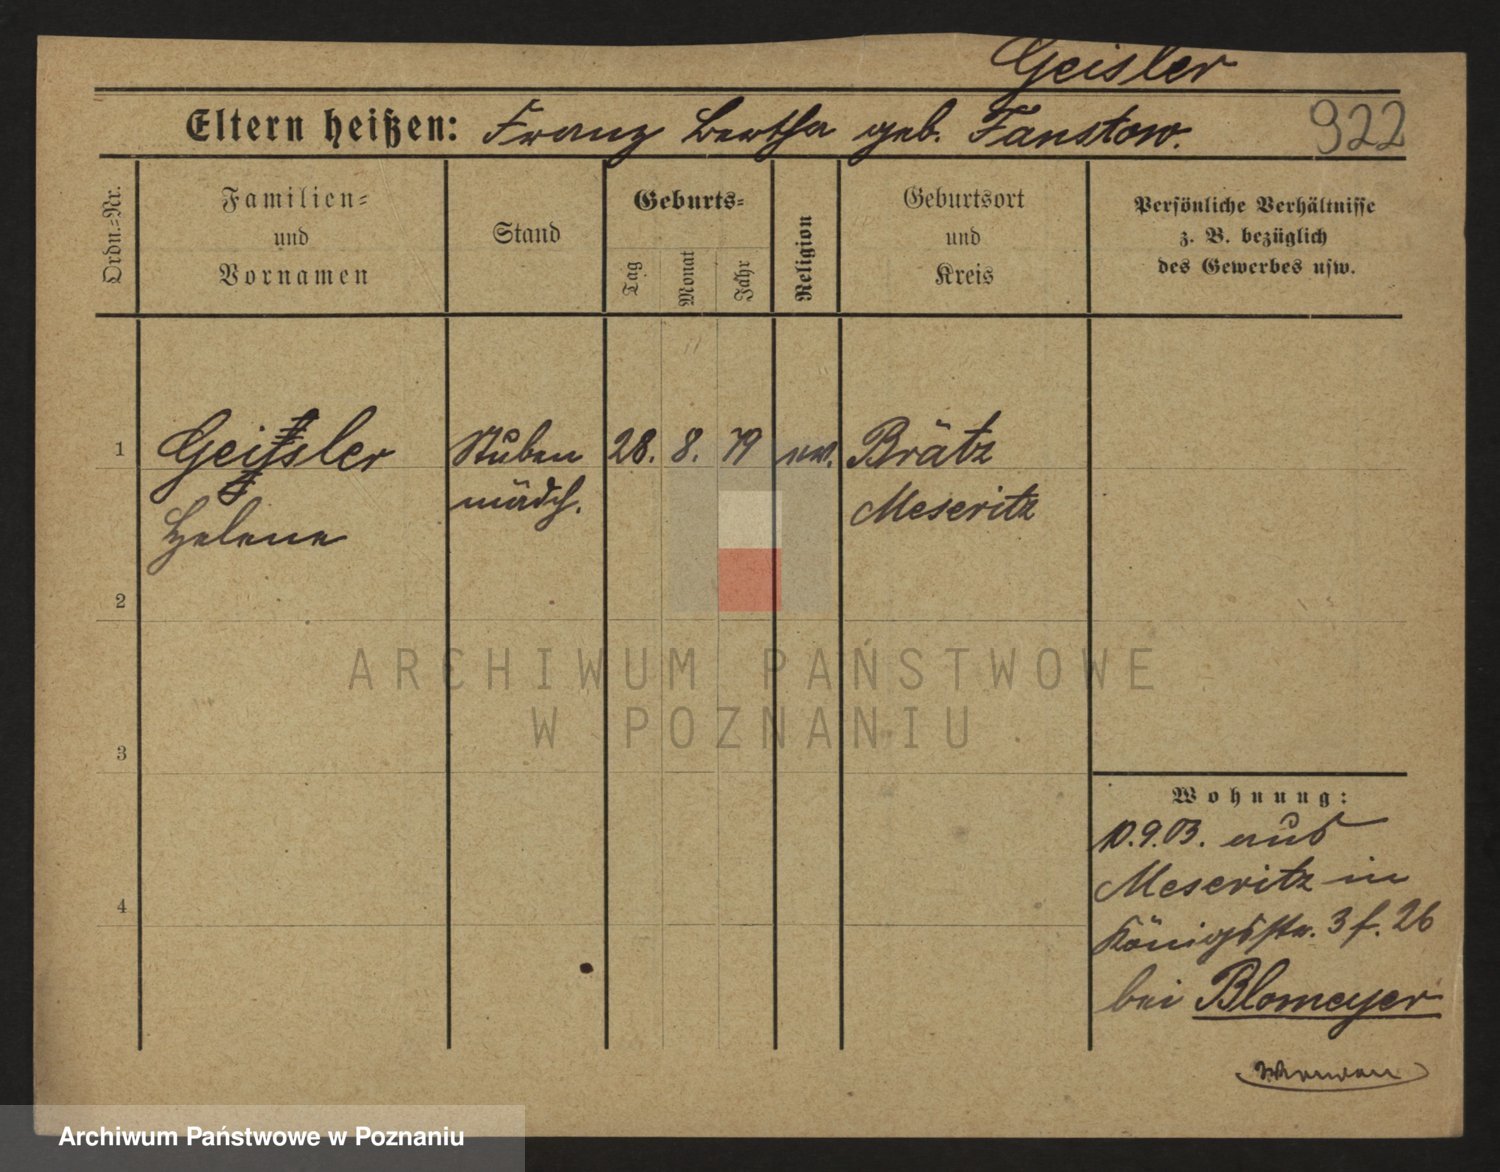 Geisler
Eltern heißen: Franz Bertha geb. Fanstow.
922
Ordn.=Nr.
Familien=
und
Vornamen
Stand
Geburts=
Tag
Monat
Jahr
Religion
Geburtsort
und
Kreis
Persönliche Verhältnisse
z. B. bezüglich
des Gewerbes usw.
1
Geissler
Helene
Stuben
mädch.
28. 8. 79
Brätz
Meseritz
2
3
4
ARCHIWUM PAŃSTWOWE
W POZNANIU
Wohnung:
10.9.03. aus
Meseritz in
Königsstr. 3 f. 26
bei Blomeyer
Archiwum Państwowe w Poznaniu